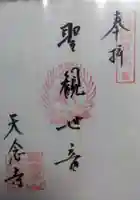 奉拝
聖観世音
天念寺